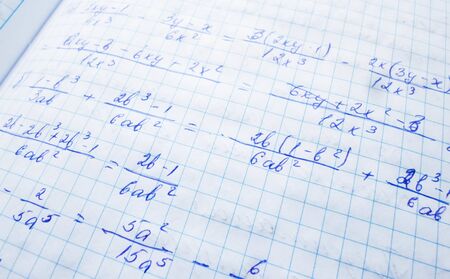 xy-1/x³ - 3y-x/6x² = 3(6xy-1)/12x³ - 2x(3y-x)/12x³
xy-3-6xy+2x²/12x³ = 6xy+2x²-3/12x³
1-b³/3ab + 2b³-1/6ab² = 2b(1-b²)/6ab² + 2b³-1/6ab
-2b³+2b³-1/6ab² = 2b-1/6ab²
- 2/5a⁵ = 5a²/15a⁵ - 6